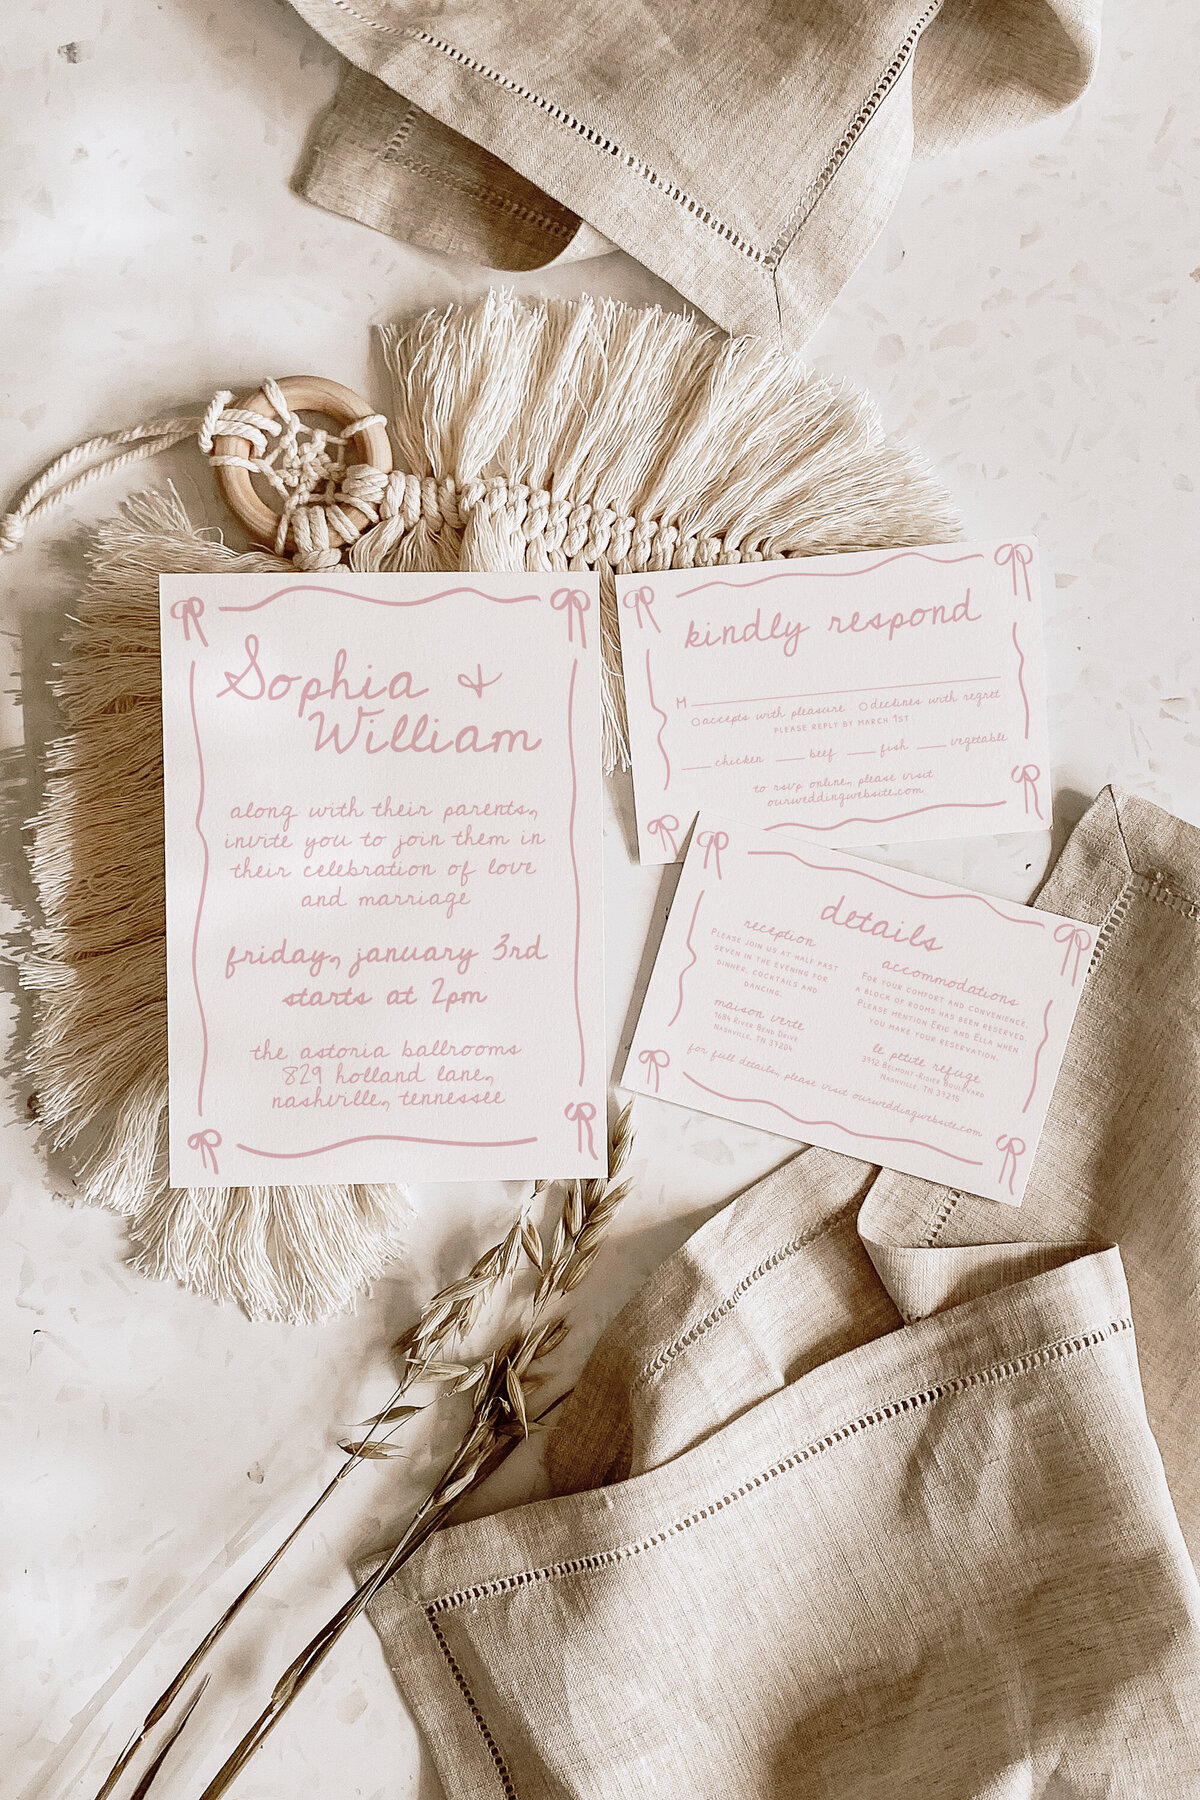 Sophia &
William
along with their parents,
invite you to join them in
their celebration of love
and marriage
friday, january 3rd
starts at 2pm
the astoria ballrooms
829 holland lane,
nashville, tennessee
kindly respond
M
accepts with pleasure declines with regret
PLEASE REPLY BY MARCH 1ST
chicken beef fish vegetable
to rsvp online, please visit
ourweddingwebsite.com
details
reception
PLEASE JOIN US AT HALF PAST
SEVEN IN THE EVENING FOR
DINNER, COCKTAILS AND
DANCING.
maison verte
1684 RIVER BEND DRIVE
NASHVILLE, TN 37204
accommodations
FOR YOUR COMFORT AND CONVENIENCE,
A BLOCK OF ROOMS HAS BEEN RESERVED.
PLEASE MENTION ERIC AND ELLA WHEN
YOU MAKE YOUR RESERVATION.
le petite refuge
3912 BELMONT-RISIER BOULEVARD
NASHVILLE, TN 37215
for full details, please visit ourweddingwebsite.com